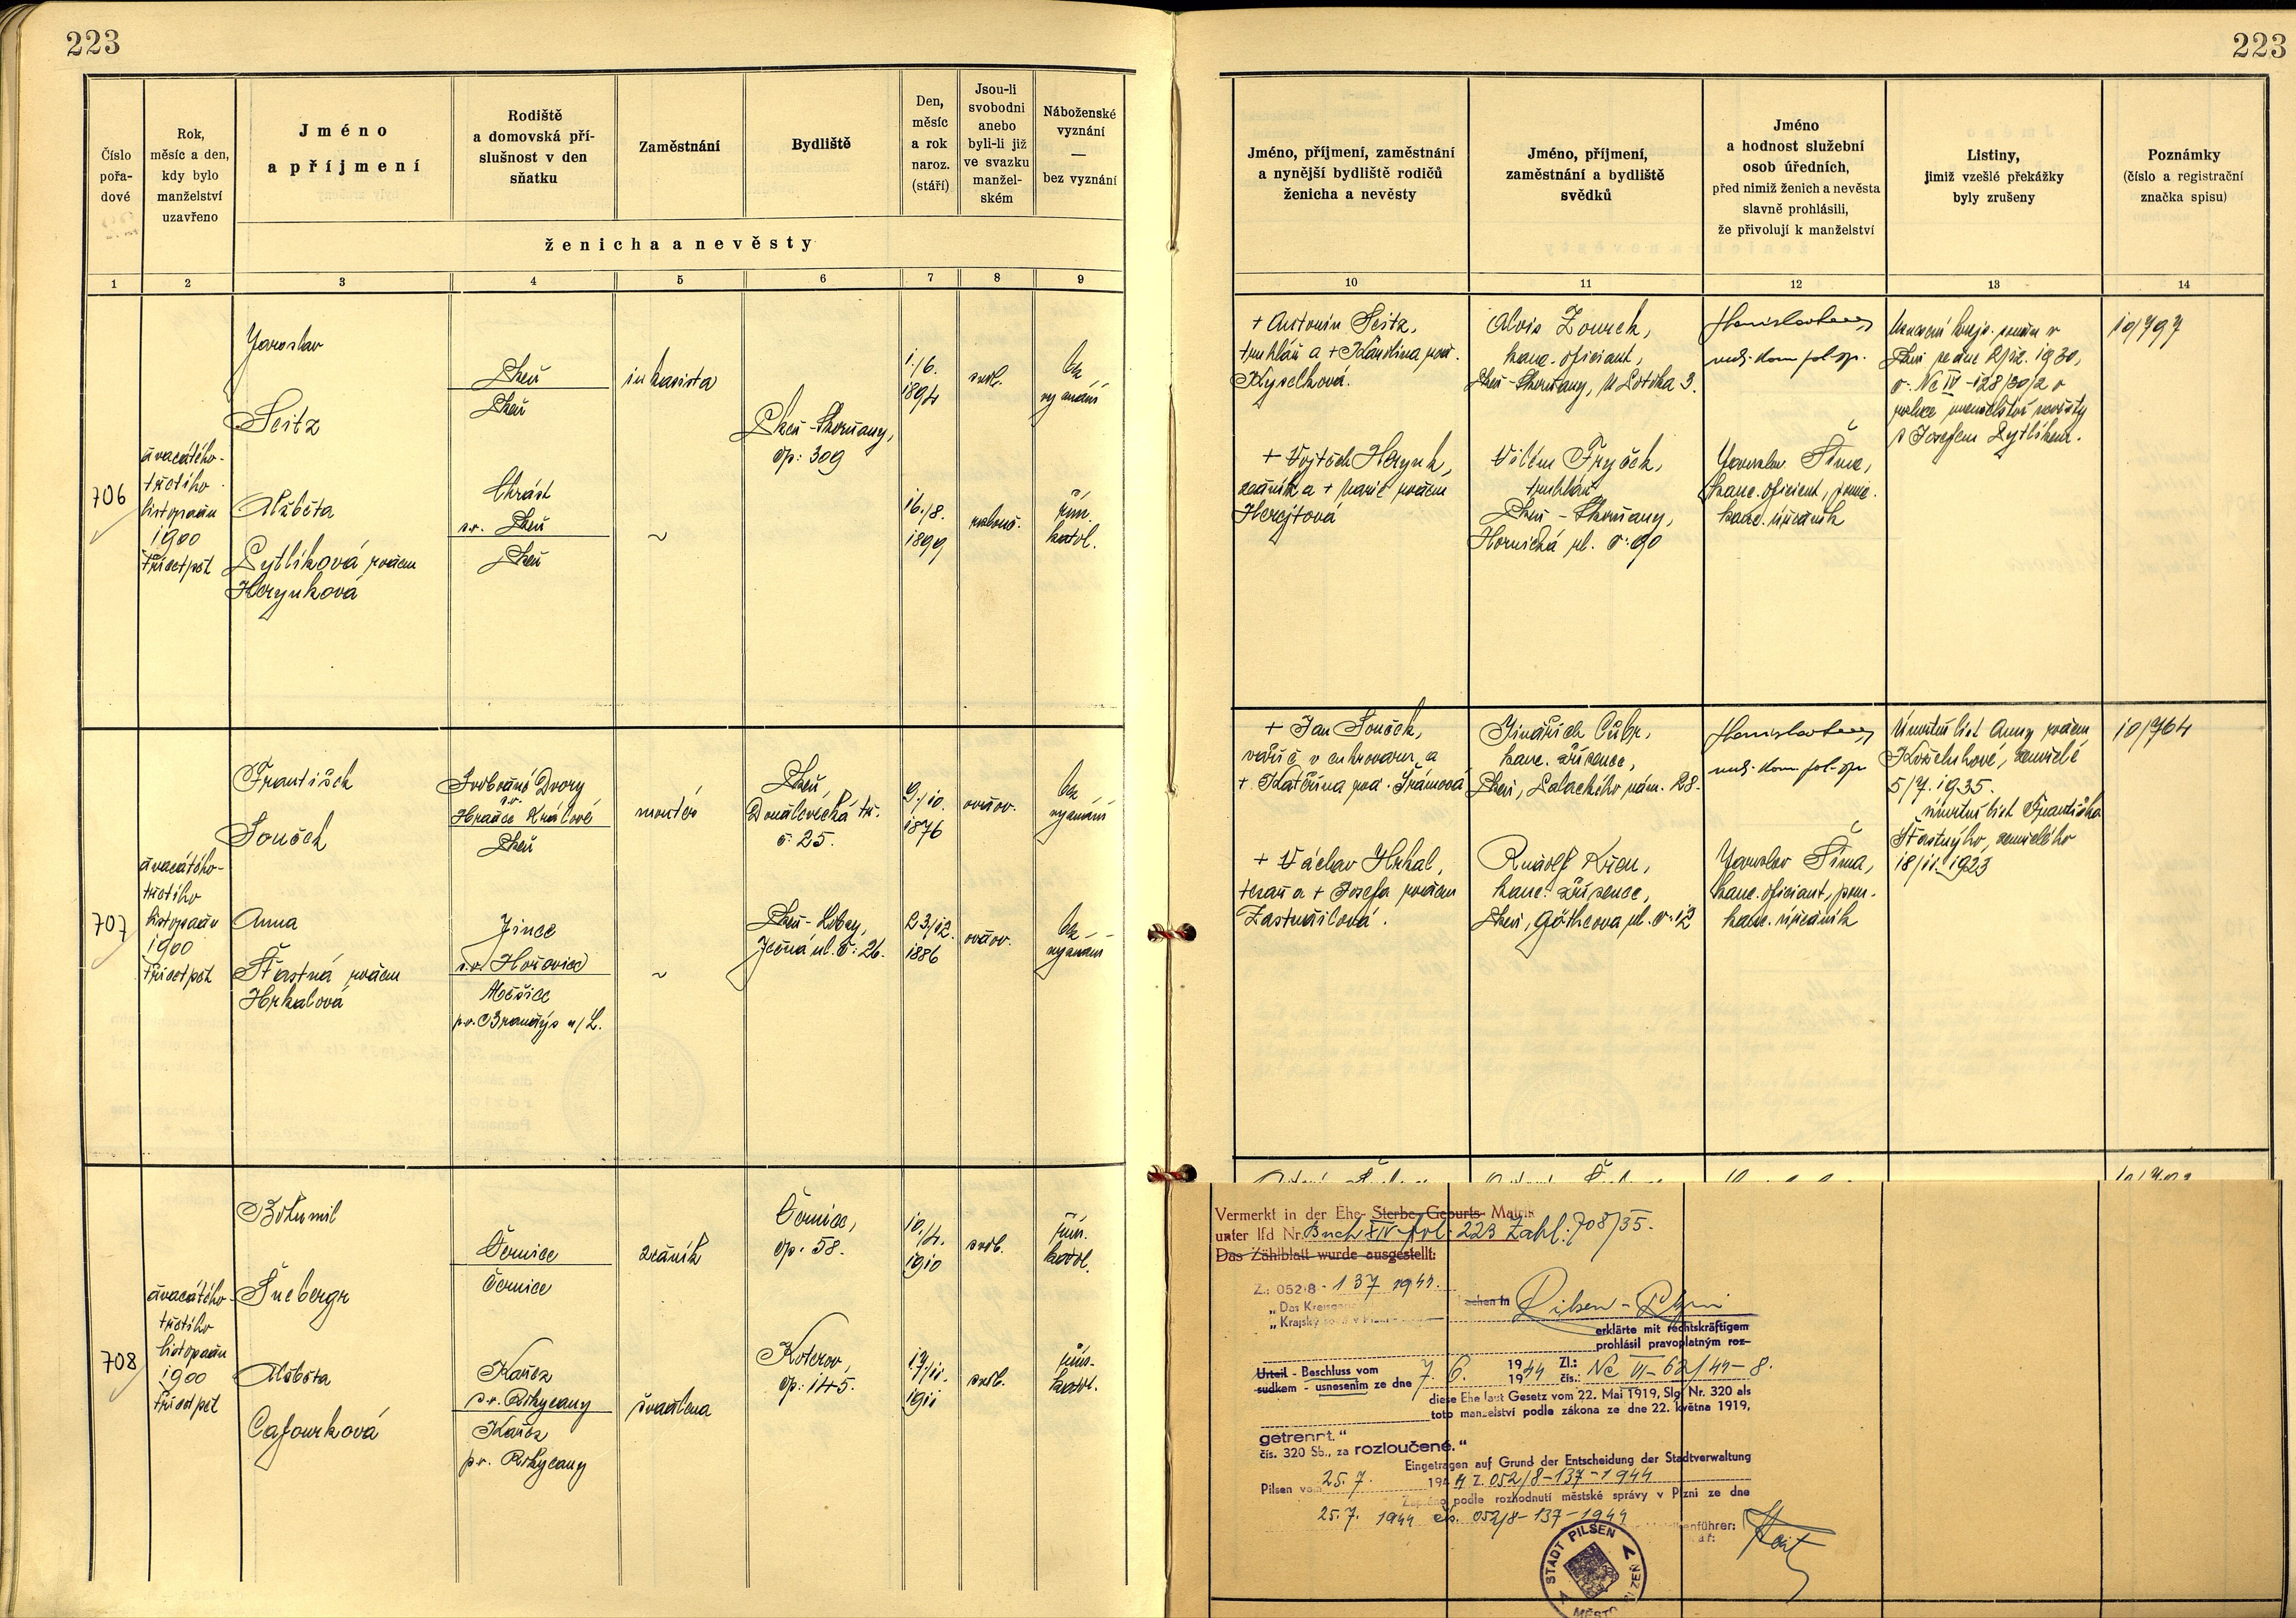 223
223
Číslo
pořa-
dové
Rok,
měsíc a den,
kdy bylo
manželství
uzavřeno
Jméno
a příjmení
Rodiště
a domovská pří-
slušnost v den
sňatku
Zaměstnání
Bydliště
Den,
měsíc
a rok
naroz.
(stáří)
Jsou-li
svobodni
anebo
byli-li již
ve svazku
manžel-
ském
Náboženské
vyznání
—
bez vyznání
ženicha a nevěsty
1 2 3 4 5 6 7 8 9
Jméno, příjmení, zaměstnání
a nynější bydliště rodičů
ženicha a nevěsty
Jméno, příjmení,
zaměstnání a bydliště
svědků
Jméno
a hodnost služební
osob úředních,
před nimiž ženich a nevěsta
slavně prohlásili,
že přivolují k manželství
Listiny,
jimiž vzešlé překážky
byly zrušeny
Poznámky
(číslo a registrační
značka spisu)
10 11 12 13 14
706
dvacátého-
třetího
listopadu
1900
třicetpět
Jaroslav
Seitz
Alžběta
Pytlíková rozen
Herynková
Plzeň
Plzeň
Chrást
p.o. Plzeň
Plzeň
inkasista
~
Plzeň-Skvrňany,
čp: 309
1./6.
1894
16./8.
1899
svob.
rozlouč.
bez
vyznání
řím.
katol.
+ Antonín Seitz,
truhlář a + Karolina roz.
Kyselková.
+ Vojtěch Herynk,
zedník a + Marie rozen
Herejtová
Alois Zourek,
kanc. oficiant,
Plzeň-Skvrňany, U Lotika 3.
Vilém Fryček,
truhlář
Plzeň - Skvrňany,
Hornická ul. č: 90
Jaroslav Šíma,
kanc. oficient, pom.
kanc. úředník
Plzni ze dne 2/12. 1930,
č. Nc IV-128/30/2 o
s Josefem Pytlíkem.
10/797
707
dvacátého-
třetího
listopadu
1900
třicetpět
František
Souček
Anna
Šťastná rozen
Hrkalová
Svobodné Dvory
p.o.
Hradec Králové
Plzeň
Jince
p.o. Hořovice
Měšice
p.o. Brandýs n/L.
montér
~
Plzeň,
Doudlevecká tř.
č. 25.
Plzeň-Lobzy,
Ječná ul. č: 26.
9./10.
1876
23/12.
1886
ovdov.
ovdov.
bez
vyznání
bez
vyznání
+ Jan Souček,
vařič v cukrovaru a
+ Kateřina roz. Šrámová
+ Václav Hrkal,
tesař a + Josefa rozen
Zastměšilová.
Jindřich Cíbr,
kanc. zřízenec,
Plzeň, Palackého nám. 28.
Rudolf Křen,
kanc. zřízenec,
Plzeň, Götheova ul. č. 12
Jaroslav Šíma,
kanc. oficiant, pom.
kanc. úředník
Úmrtní list Anny rozen
Koželuhové, zemřelé
5/7. 1935.
úmrtní list Františka
Šťastného, zemřelého
18/11. 1923
10/764
708
dvacátého-
třetího
listopadu
1900
třicetpět
Bohumil
Šnebergr
Alžběta
Cafourková
Černice
Černice
Kařez
p.o. Rokycany
Kařez
p.o. Rokycany
zedník
švadlena
Černice,
čp. 58.
Koterov,
čp: 145.
10./4.
1910
17/11.
1911
svob.
svob.
řím.
katol.
řím.
katol.
Vermerkt in der Ehe- Sterbe-Geburts- Matrik
unter lfd Nr. Buch XIV fol. 223 Zahl: 708/35.
Das Zählblatt wurde ausgestellt:
Z.: 052/8 - 137 1944.
„Das Kreisger
„Krajský soud v
Pilsen - Plzni
erklärte mit rechtskräftigem
prohlásil pravoplatným roz-
Urteil - Beschluss vom 7. 6. 1944 Zl.: Nc VI-62/44-8.
sudkem - usnesením ze dne 1944 čís.:
diese Ehe laut Gesetz vom 22. Mai 1919, Slg Nr. 320 als
toto manželství podle zákona ze dne 22. května 1919,
getrennt.“
čís. 320 Sb., za rozloučené.“
Eingetragen auf Grund der Entscheidung der Stadtverwaltung
Pilsen vom 25. 7. 1944 Z. 052/8-137-1944
Zapsáno podle rozhodnutí městské správy v Plzni ze dne
25. 7. 1944 čís. 052/8-137-1944
enführer:
STADT PILSEN
MĚSTO PLZEŇ